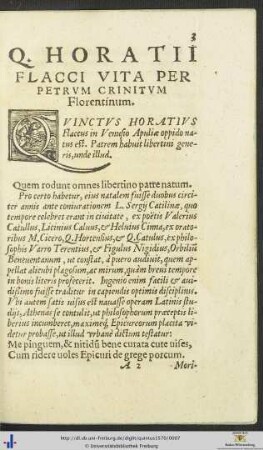 3
Q. HORATII
FLACCI VITA PER
PETRVM CRINITVM
Florentinum.
QVINCTVS HORATIVS
Flaccus in Venusio Apuliæ oppido na-
tus est. Patrem habuit libertini gene-
ris, unde illud,
Quem rodunt omnes libertino patre natum.
Pro certo habetur, eius natalem fuisse duobus circi-
ter annis ante coniurationem L. Sergij Catilinæ, quo
tempore celebres erant in ciuitate, ex poëtis Valerius
Catullus, Licinius Caluus, & Heluius Cinna, ex orato-
ribus M. Cicero, Q. Hortensius, & Q. Catulus, ex philo-
sophis Varro Terentius, & Figulus Nigidius, Orbiliū
Beneuentanum, ut constat, à puero audiuit, quem appel-
lat alicubi plagosum, ac mirum, quàm breui tempore
in bonis literis profecerit. Ingenio enim facili & aui-
dissimo fuisse traditur in capiendis optimis disciplinis.
Vbi autem satis uisus est nauasse operam Latinis stu-
dijs, Athenas se contulit, ut philosophorum præceptis li-
berius incumberet, maximeq́; Epicureorum placita vi-
detur probasse, ut illud vrbanè dictum testatur:
Me pinguem, & nitidū bene curata cute uises,
Cum ridere uoles Epicuri de grege porcum.
A 2 Mori-
http://digi.ub.uni-freiburg.de/diglit/quintus1570/0007
© Universitätsbibliothek Freiburg